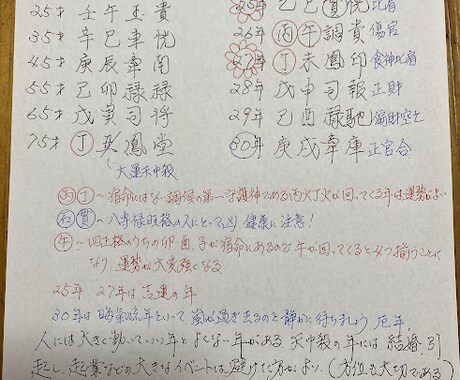 25才 壬午玉貴
25年 乙巳貫悦 比肩
35才 辛巳車悦
26年 丙午調貴 傷官
45才 庚辰牽南
27年 丁未鳳印 食神
55才 己卯禄禄
28年 戊申司報 正財
65才 戊寅司将
29年 己酉禄馳 偏財空亡
75才 丁丑鳳堂
30年 庚戌牽庫 正官合
大運天中殺
丙丁~宿命にはない調候の第一守護神である丙火丁火が回ってくる年は運勢がよい
石貫~八専禄旺格の人にとって 健康に注意!
午~四正格のうちの卯酉子が宿命にあるので午が回ってくると4つ揃うことに
なり、運勢が大変強くなる
25年 27年は吉運の年
30年は晦気の流年といって嵐が過ぎ去るのを静かに待ちましょう 厄年
人には大きく動いていい年とよくない年がある 天中殺の年には結婚 引
起し、起業などの大きなイベントは避けた方がよい(方位も大切である)